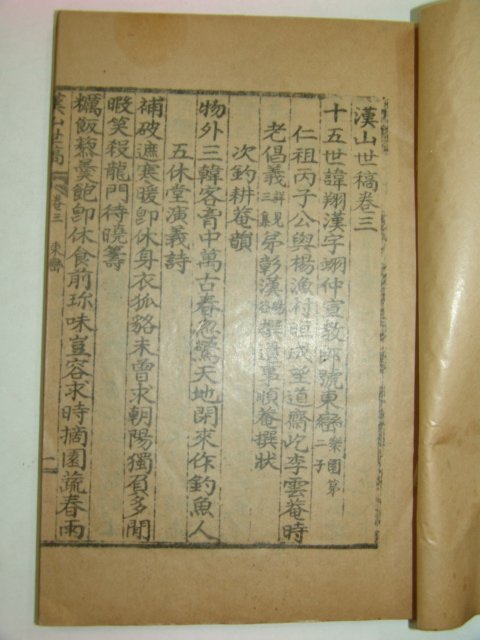 漢山世稿卷三
十五世諱翔漢字翊仲宣教郎號東巒樂園第二子
仁祖丙子公與楊漁村晅成望道齋屹李雲菴時
老倡義詳見三集弟彰漢撰遺事順菴撰狀
次釣耕菴韻
物外三韓客胷中萬古春忽驚天地閉來作釣魚人
五休堂演義詩
補破遮寒暖卽休身衣狐貉未曾求朝陽獨負多閒
暇笑殺龍門待曉籌
糲飯藜羹飽卽休食前珎味豈容求時摘園蔬春雨
漢山世稿 卷三 東巒 一